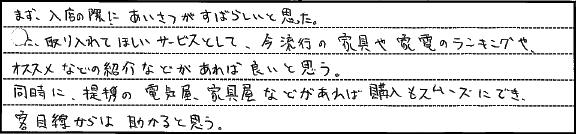 まず、入店の際に あいさつがすばらしいと思った。
取り入れてほしいサービスとして、今流行の 家具や家電のランキングや、
オススメなどの紹介などがあれば良いと思う。
同時に、提携の 電気屋、家具屋などがあれば 購入もスムーズにでき、
客目線からは 助かると思う。